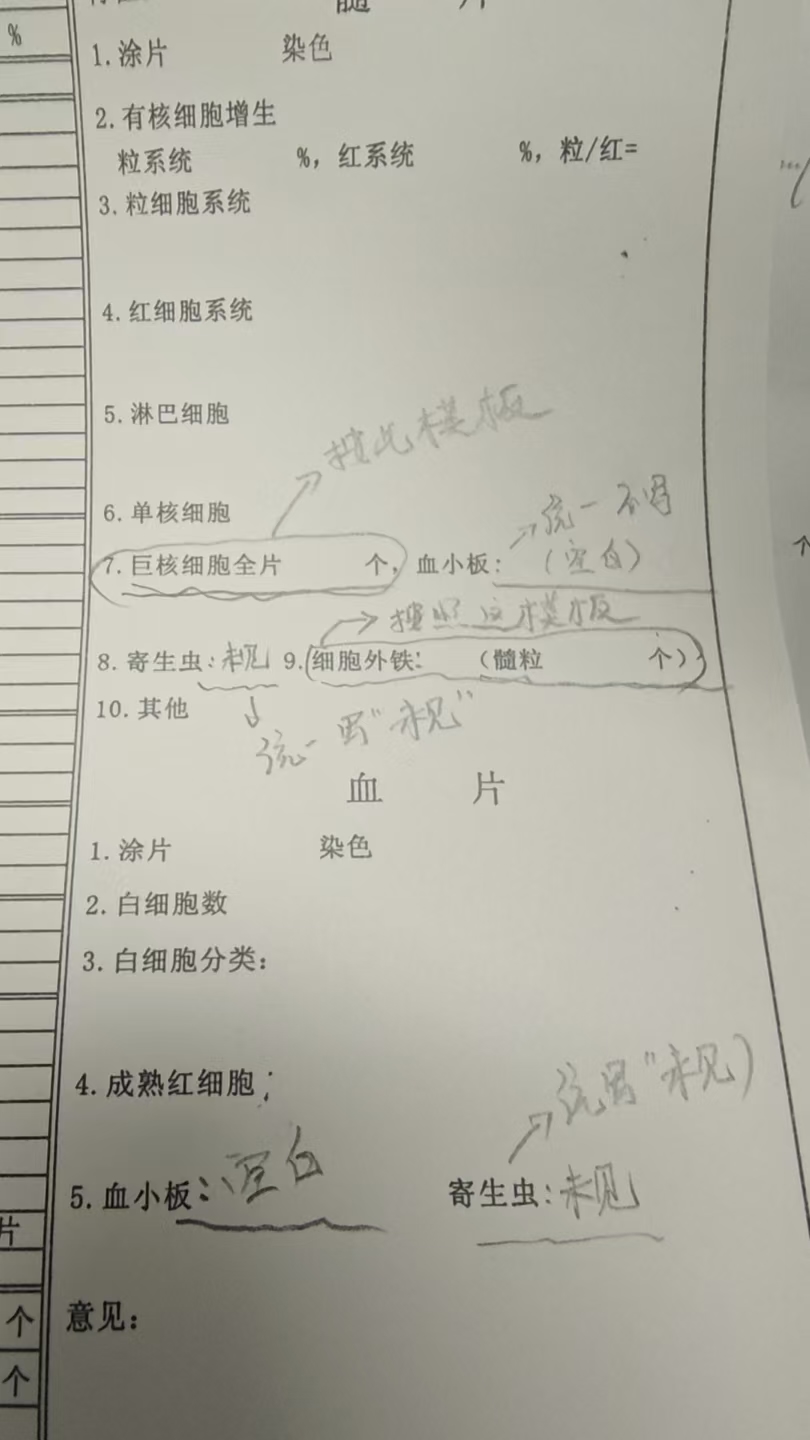 髓 片
%
1.涂片 染色
2.有核细胞增生
粒系统 %，红系统 %，粒/红=
3.粒细胞系统
4.红细胞系统
5.淋巴细胞
按此模板
6.单核细胞
统一不写
7.巨核细胞全片 个，血小板：（空白）
按照这模板
8.寄生虫：未见 9.细胞外铁： （髓粒 个）
10.其他
统一写“未见”
血 片
1.涂片 染色
2.白细胞数
3.白细胞分类：
4.成熟红细胞：
统写“未见）
5.血小板：空白 寄生虫：未见
片
意见：
个
个
个